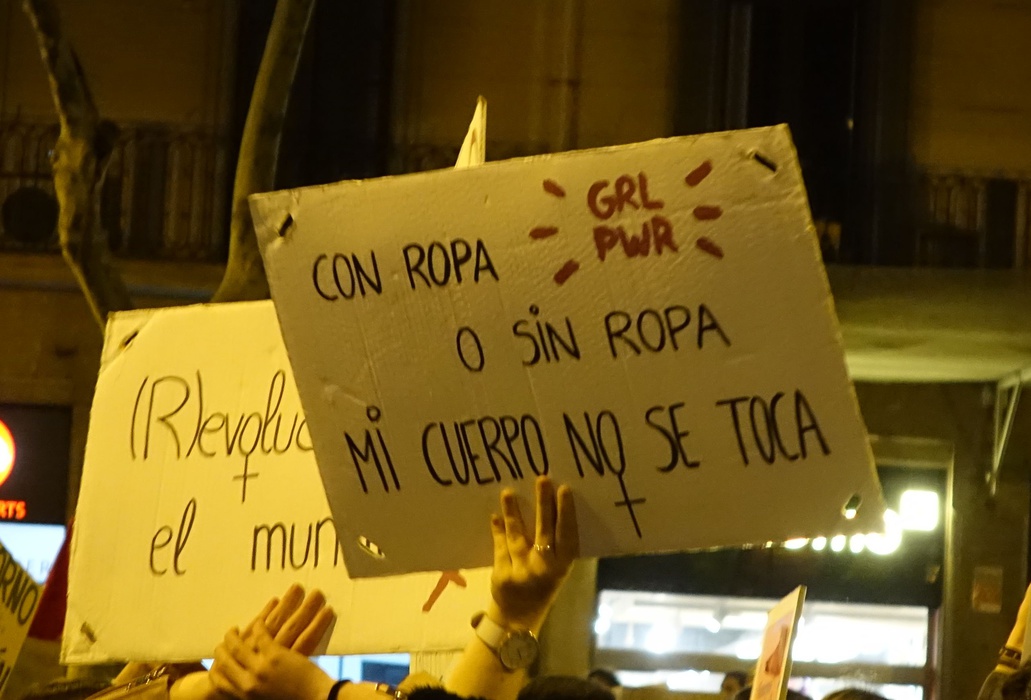 GRL
PWR
CON ROPA
O SIN ROPA
MI CUERPO NO SE TOCA
(R)evoluc
el mun
RTS
ORNO